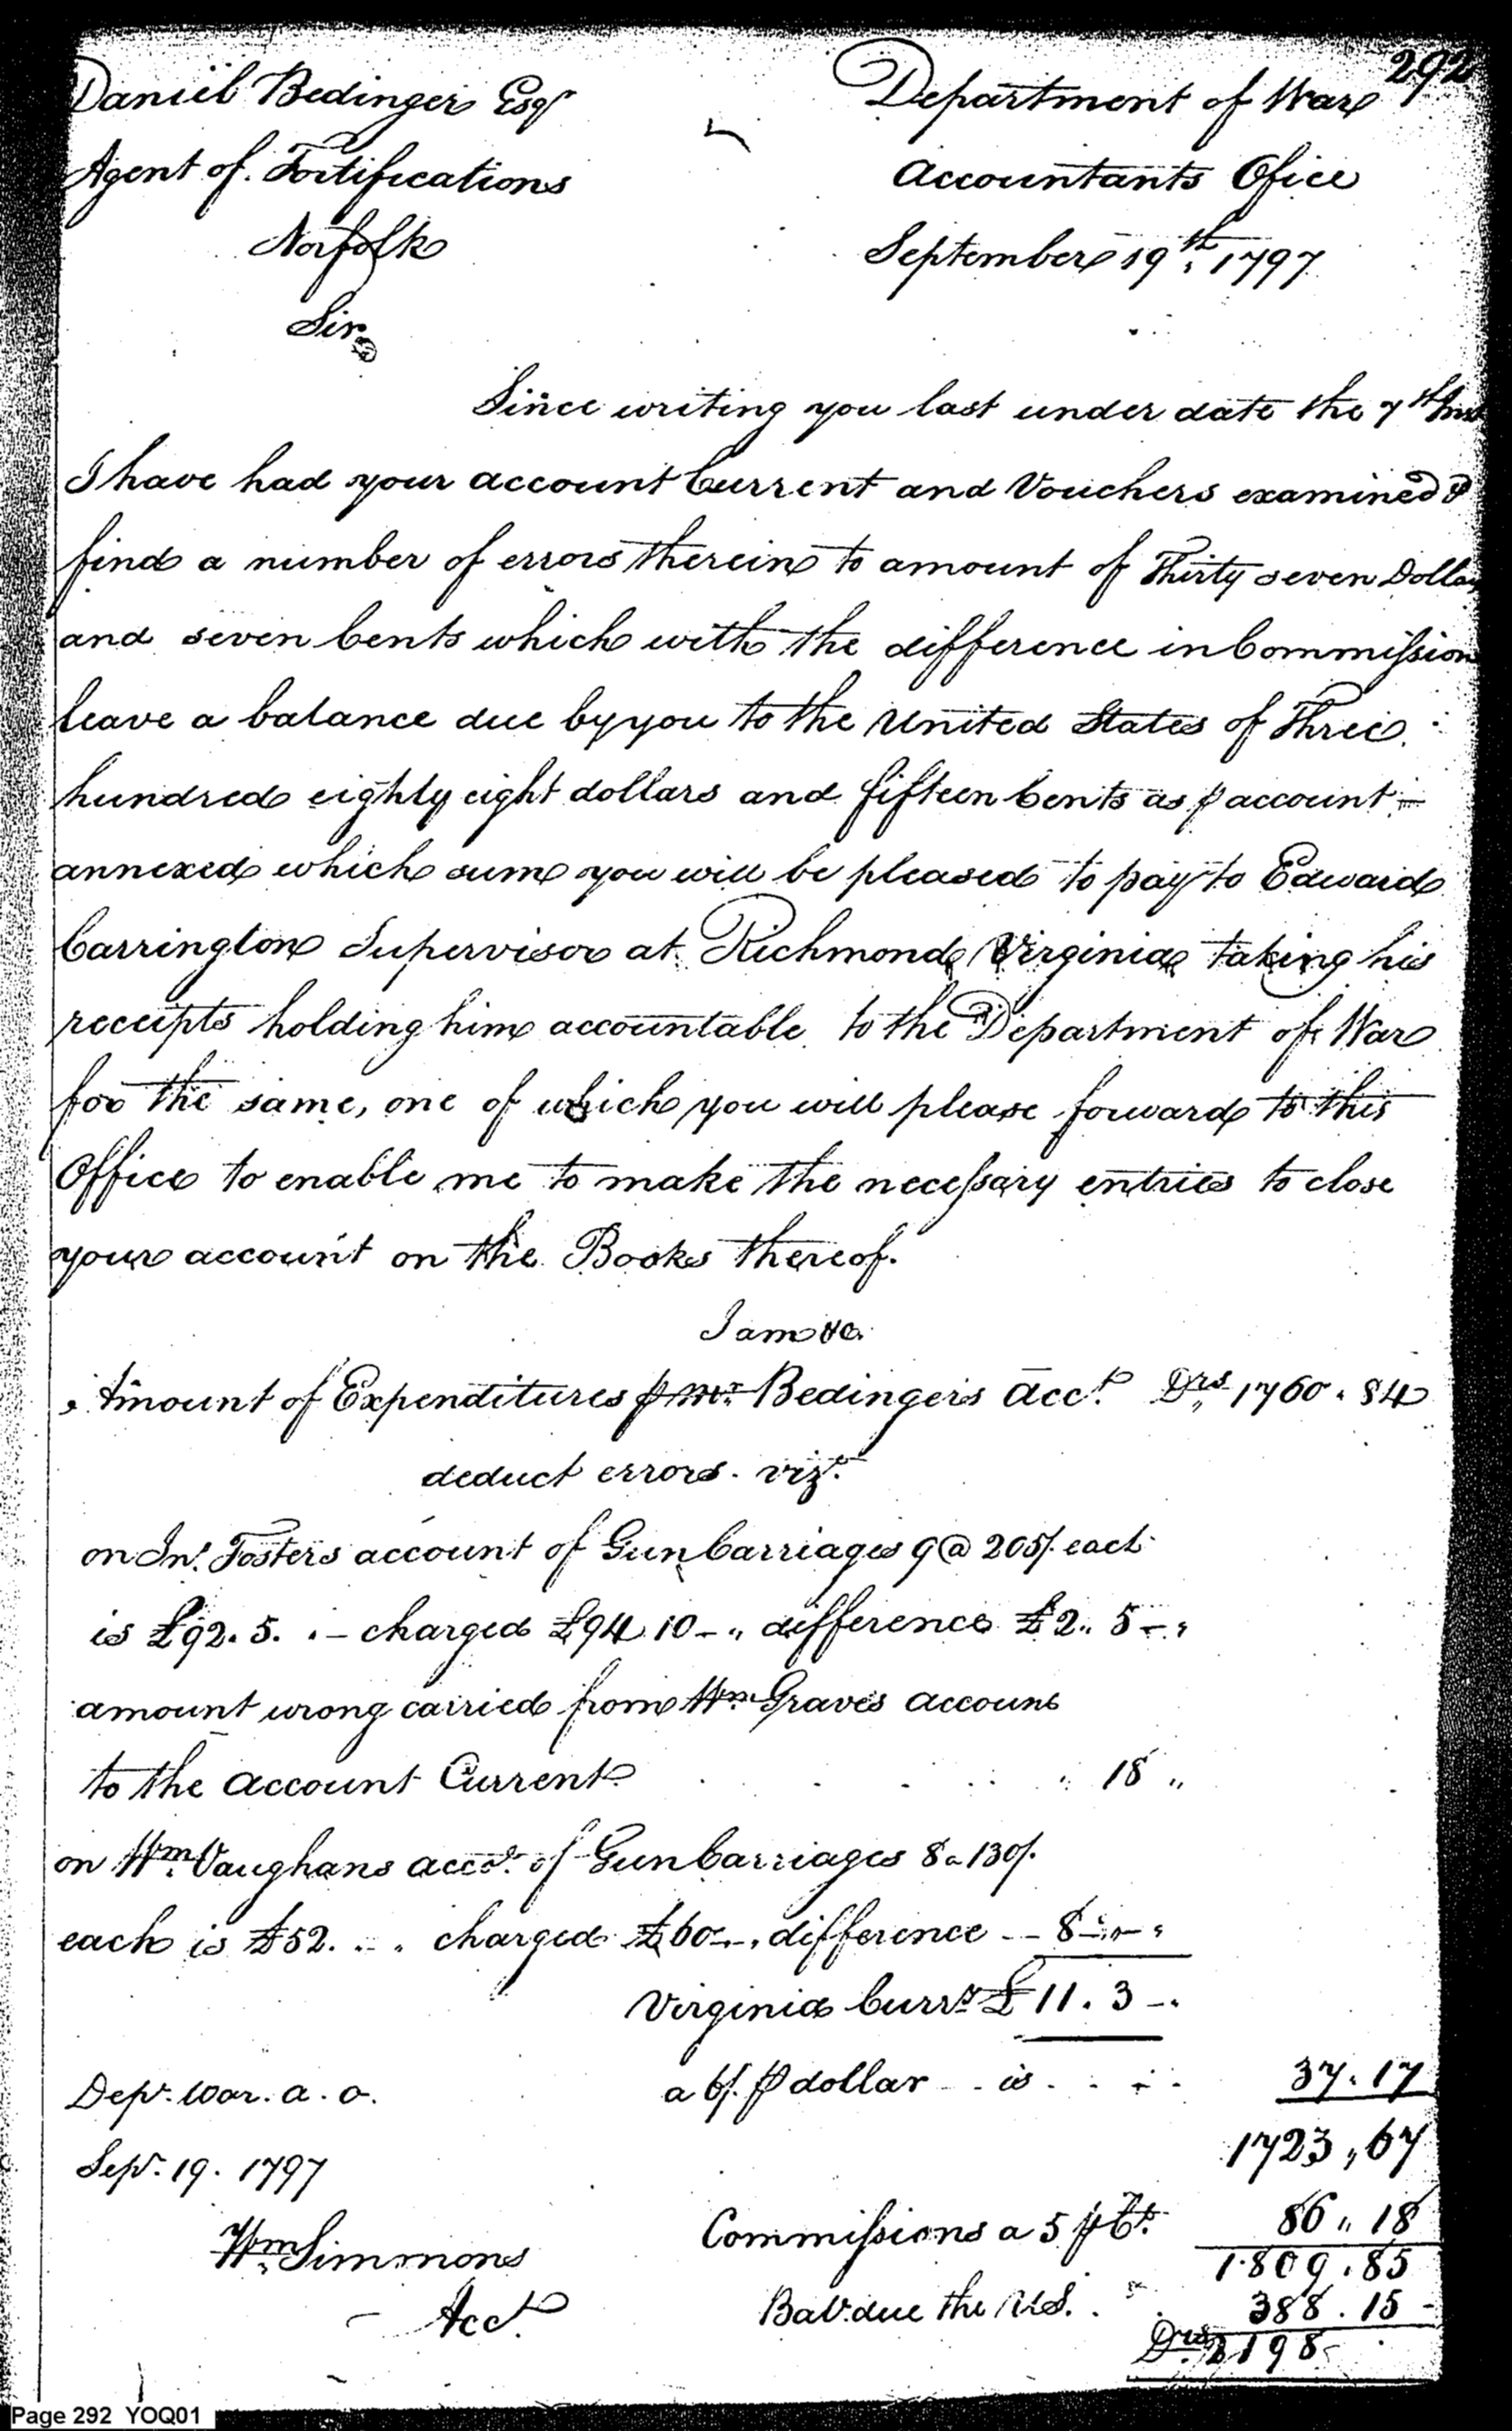 292
Daniel Bedinger Esqr
Agent of Fortifications
Norfolk
Department of War
Accountants Ofice
September 19th, 1797
Sir,
Since writing you last under date the 7th Inst
I have had your account Current and Vouchers examined &
find a number of errors therein to amount of Thirty seven Dollars
and seven Cents which with the difference in Commission
leave a balance due by you to the United States of Three
hundred eighty eight dollars and fifteen Cents as ⅌ account -
annexed which sum you will be pleased to pay to Edward
Carrington Supervisor at Richmond, Virginia taking his
receipts holding him accountable to the Department of War
for the same, one of which you will please forward to this
Office to enable me to make the necessary entries to close
your account on the Books thereof.
I am &c.
Amount of Expenditures ⅌ Mr. Bedingers Acct. Drs 1760.84
deduct errors. vizt.
on Jno. Fosters account of Gun Carriages 9 @ 205/. each
is £92.5. - charged £94.10 - " difference £2.. 5 - "
amount wrong carried from Wm. Graves account
to the account Current " 18 "
on Wm. Vaughans accot. of Gun Carriages 8 a 130/.
each is £52. . . charged £60 - . - , difference - - 8 - " - "
Virginia Curry. £11.3 -.
a 6/. ⅌ dollar - . is . . . . 37.17
Dept. War. a. o.
1723,67
Sept. 19. 1797
Commissions a 5 ⅌ Ct. 86 " 18
Wm. Simmons
1.809.85
Acct.
Bal. due the U.S. . 388.15 -
Drs. 2198
Page 292 YOQ01